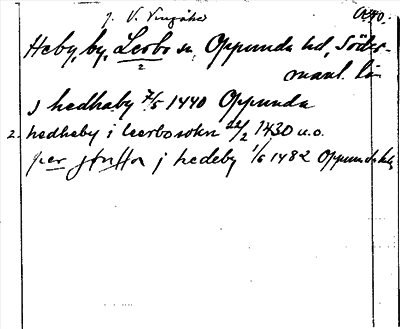 f. V. Vingåker
Heby, by, Lerbo sn, Oppunda hd, Söder-
2 manl. län
J hedhaby 7/5 1440 Oppunda
2. hedheby i leerbosokn 22/2 1430 u.o.
per j hedeby 1/6 1482 Oppunda